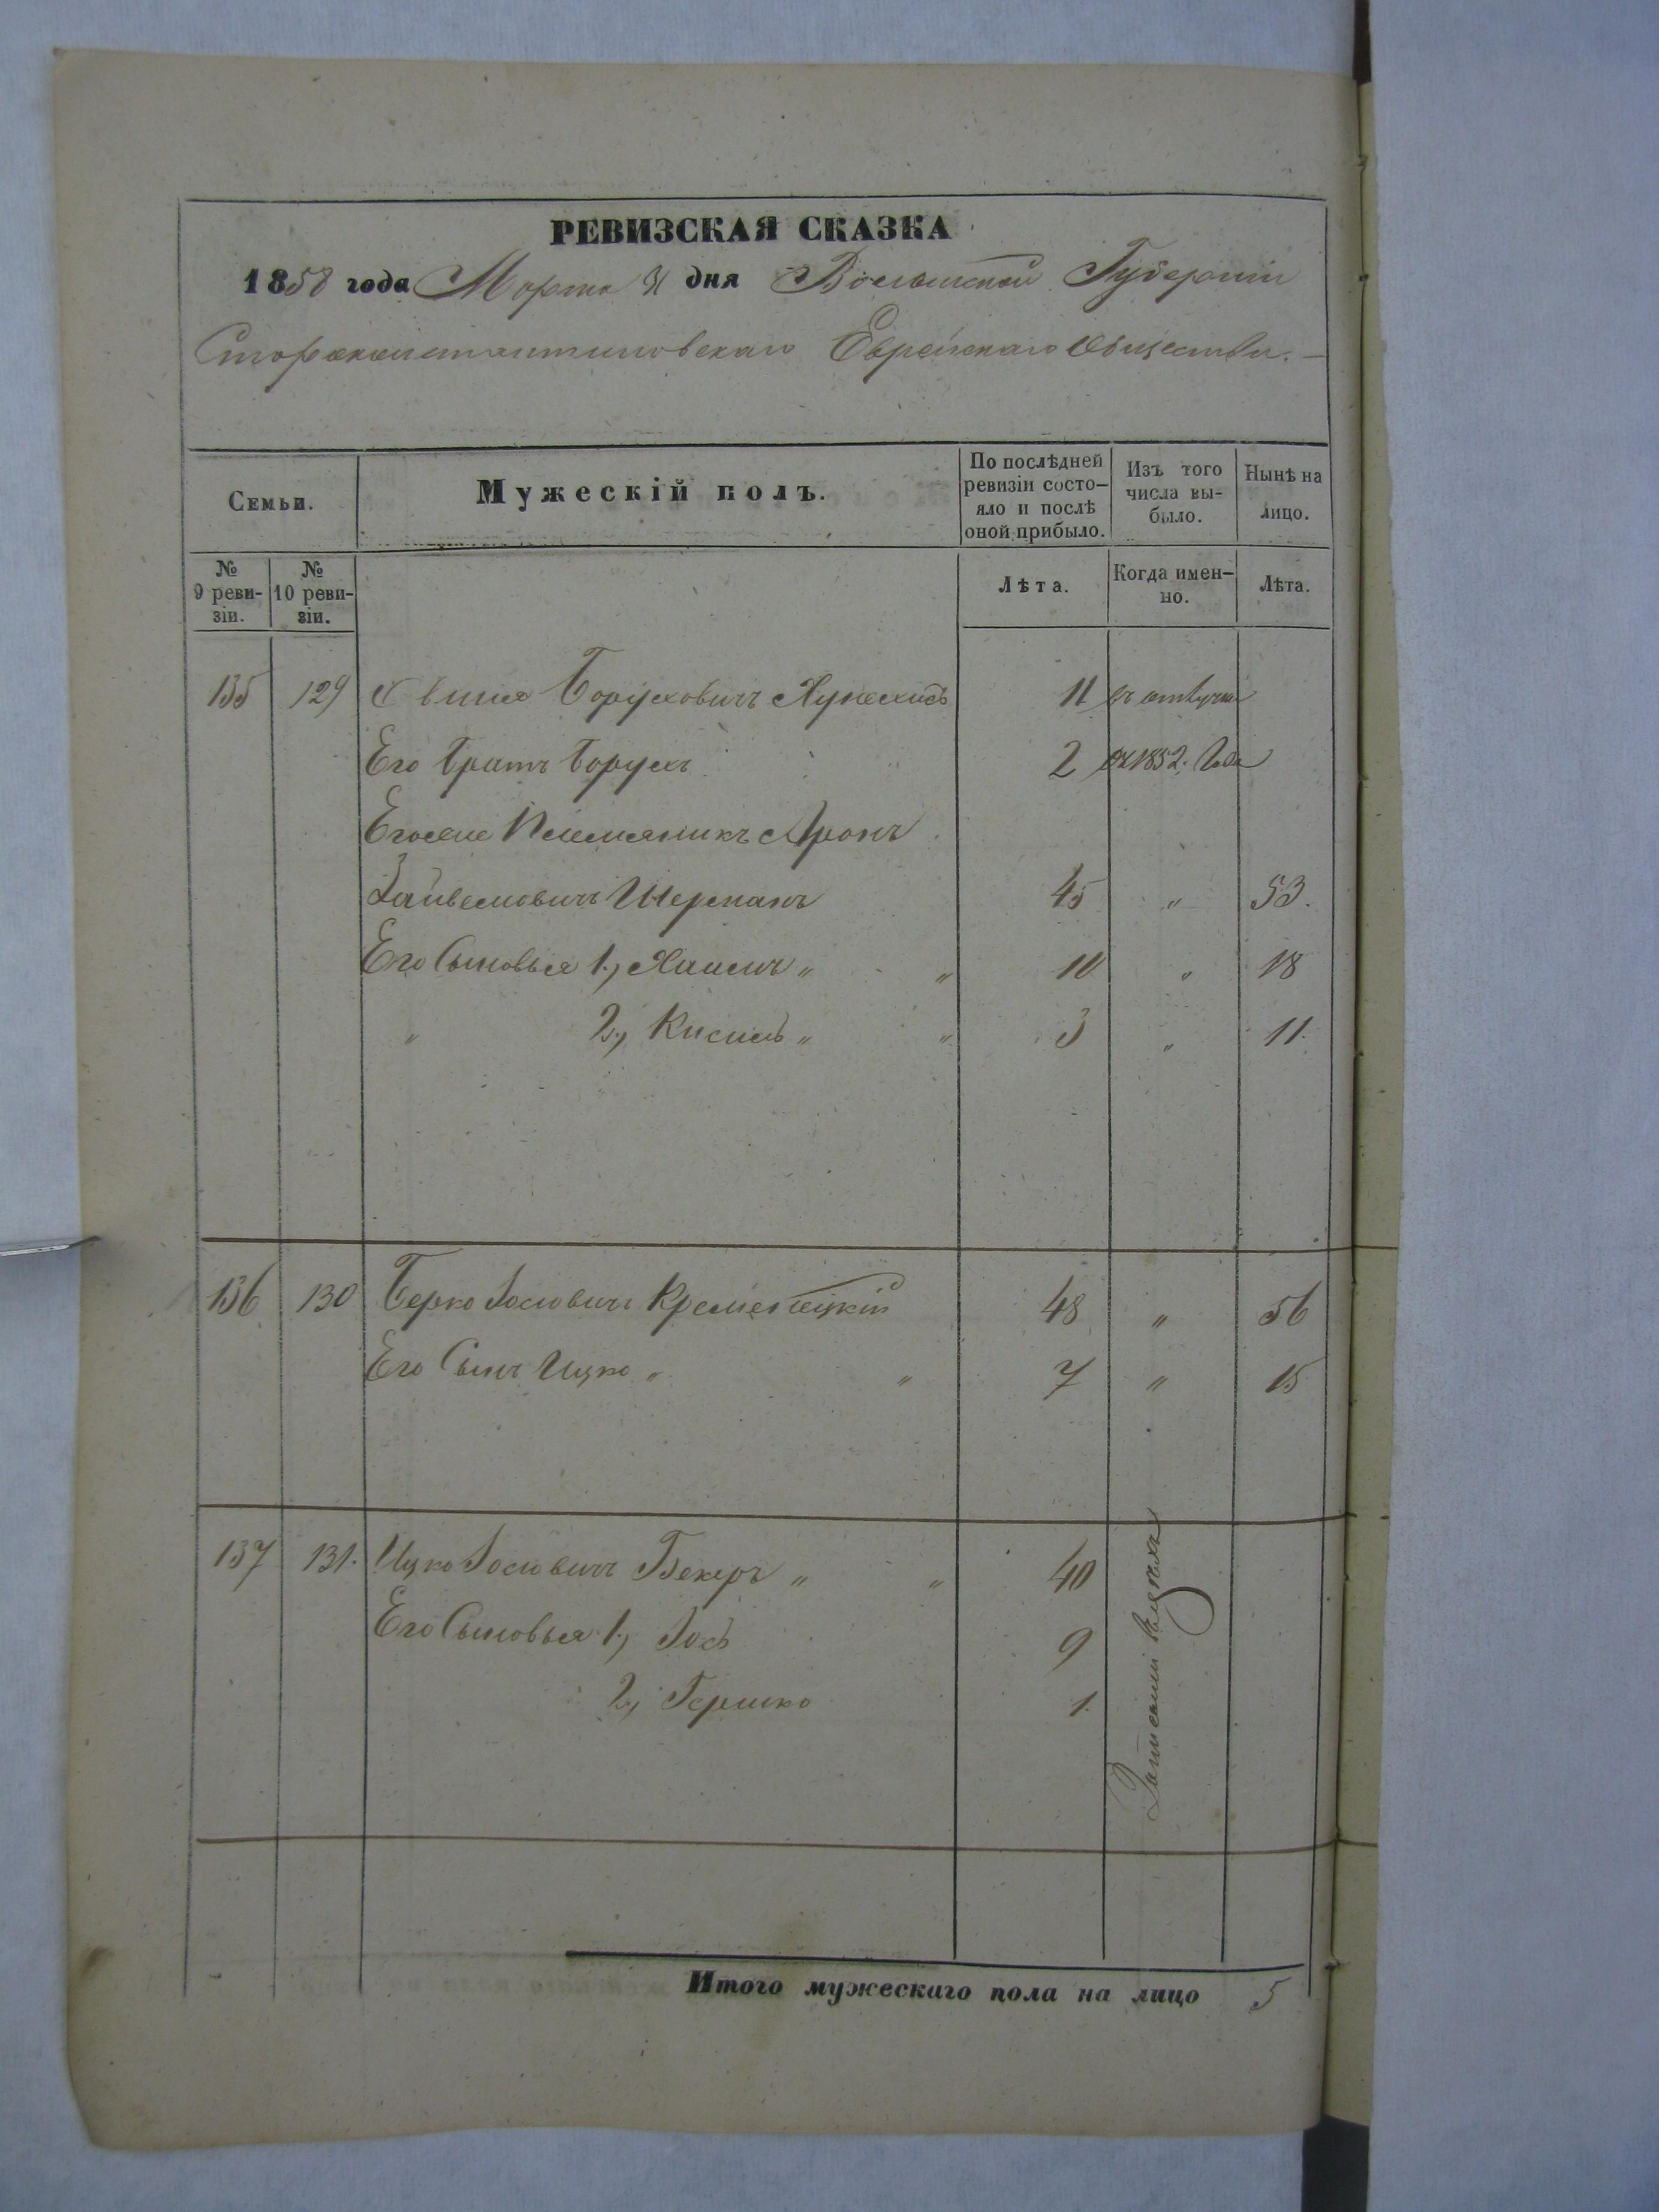 РЕВИЗСКАЯ СКАЗКА
1858 года Марта 31 дня Волынской Губерніи
Староконстантиновскаго Еврейскаго Общества. —
Семьи.
Мужескій полъ.
По послѣдней ревизіи состо-
яло и послѣ
оной прибыло.
Изъ того
числа вы-
было.
Нынѣ на
лицо.
№
9 реви-
зіи.
№
10 реви-
зіи.
Лѣта.
Когда имен-
но.
Лѣта.
135 129 Боруховичъ 11 въ отлучки
Его братъ Борухъ 2 1852. Года
Его же Племянникъ Аронъ
Зайвеловичъ Шерманъ 45 " 53.
Его Сыновья 1., Хаимъ " " 10 " 18
" 2., Кисиль " " 3 " 11.
136 130 Берко Іосіовичъ Кременецкій 48 " 56
Его Сынъ Ицко " " 7 " 15
137 131. Ицко Іосіовичъ Бекеръ " " 40
Его Сыновья 1., Іось 9
2., Гершко 1.
Итого мужескаго пола на лицо 5